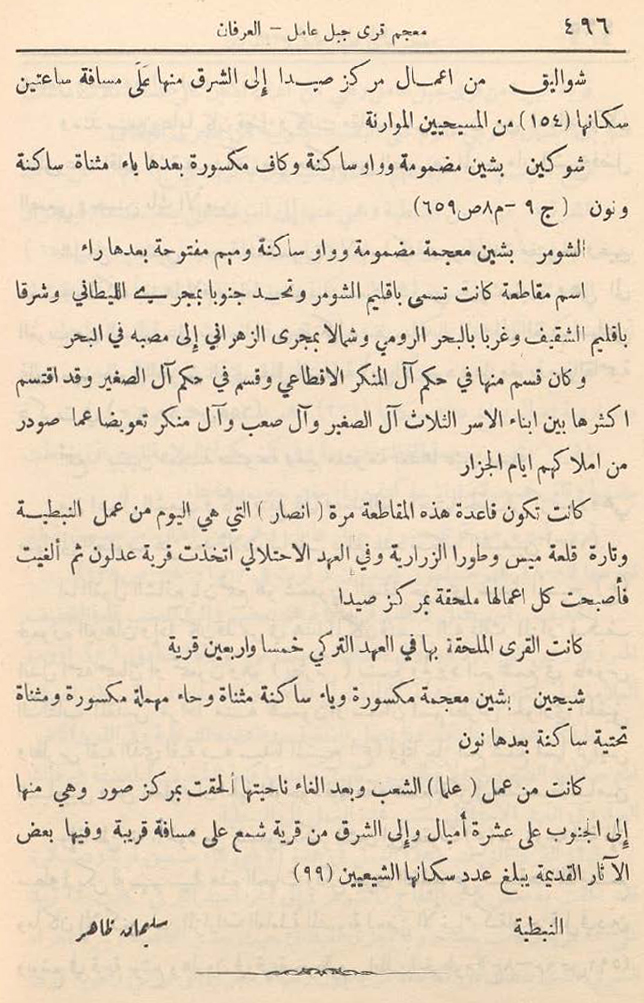 ٤٩٦ معجم قرى جبل عامل – العرفان
شواليق من اعمال مركز صيدا إلى الشرق منها عَلَى مسافة ساعتين
سكانها (١٥٤) من المسيحيين الموارنة
شوكين بشين مضمومة وواو ساكنة وكاف مكسورة بعدها ياء مثناة ساكنة
ونون (ج ٩ –م٨ص٦٥٩)
الشومر بشين معجمة مضمومة وواو ساكنة وميم مفتوحة بعدها راء
اسم مقاطعة كانت تسمى باقليم الشومر وتحد جنوبا بمجرى الليطاني وشرقا
باقليم الشقيف وغربا بالبحر الرومي وشمالا بمجرى الزهراني إلى مصبه في البحر
وكان قسم منها في حكم آل المنكر الاقطاعي وقسم في حكم آل الصغير وقد اقتسم
اكثرها بين ابناء الاسر الثلاث آل الصغير وآل صعب وآل منكر تعويضا عما صودر
من املاكهم ايام الجزار
كانت تكون قاعدة هذه المقاطعة مرة (انصار) التي هي اليوم من عمل النبطية
وتارة قلعة ميس وطورا الزرارية وفي العهد الاحتلالي اتخذت قرية عدلون ثم ألغيت
فأصبحت كل اعمالها ملحقة بمركز صيدا
كانت القرى الملحقة بها في العهد التركي خمسا واربعين قرية
شيحين بشين معجمة مكسورة وياء ساكنة مثناة وحاء مهملة مكسورة ومثناة
تحتية ساكنة بعدها نون
كانت من عمل (علما) الشعب وبعد الغاء ناحيتها ألحقت بمركز صور وهي منها
إلى الجنوب على عشرة أميال وإلى الشرق من قرية شمع على مسافة قريبة وفيها بعض
الآثار القديمة يبلغ عدد سكانها الشيعيين (٩٩)
النبطية سليمان ظاهر